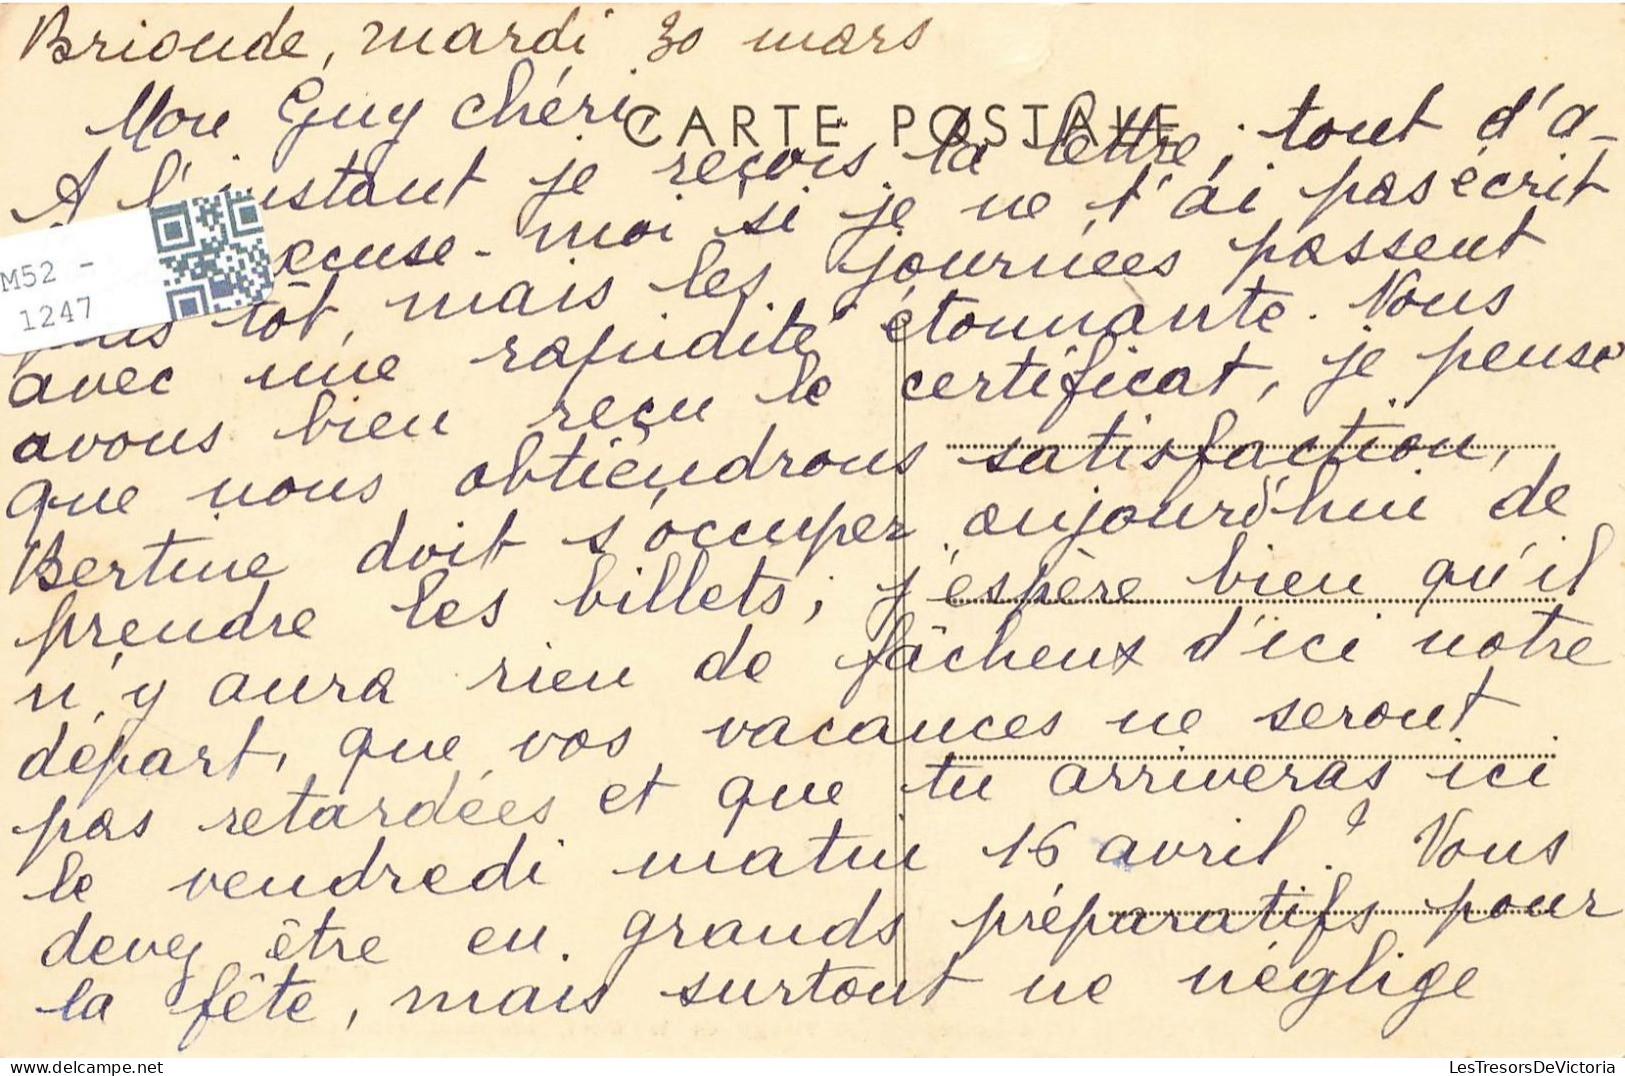 Brioude, mardi 30 mars
Mon Guy chéri,
CARTE POSTALE
A l'instant je reçois ta lettre, tout d'a-
excuse-moi si je ne t'ai pas écrit
plus tôt, mais les journées passent
avec une rapidité étonnante. Nous
avons bien reçu le certificat, je pense
que nous obtiendrons satisfaction,
Bertine doit s'occuper aujourd'hui de
prendre les billets; j'espère bien qu'il
n'y aura rien de fâcheux d'ici notre
départ, que vos vacances ne seront
pas retardées et que tu arriveras ici
le vendredi matin 16 avril? Vous
devez être en grands préparatifs pour
la fête, mais surtout ne néglige
M52 -
1247
LesTresorsDeVictoria